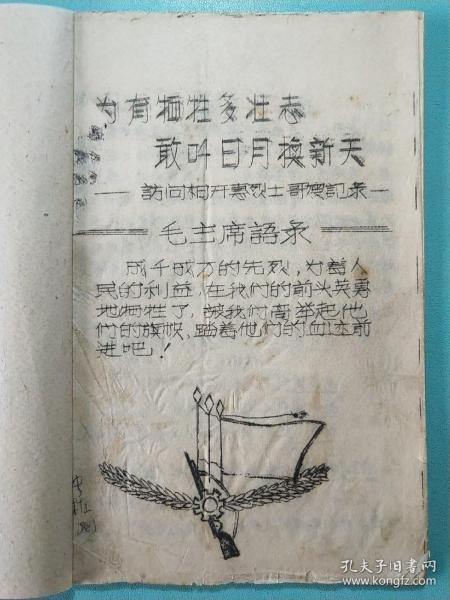 为有牺牲多壮志
敢叫日月換新天
——訪问相开惠烈士哥嫂記录—
毛主席語录
成千成万的先烈，为着人
民的利益，在我們的前头英勇
地牺牲了，讓我們高举起他
們的旗帜，踏着他們的血迹前
进吧！
孔夫子旧书网